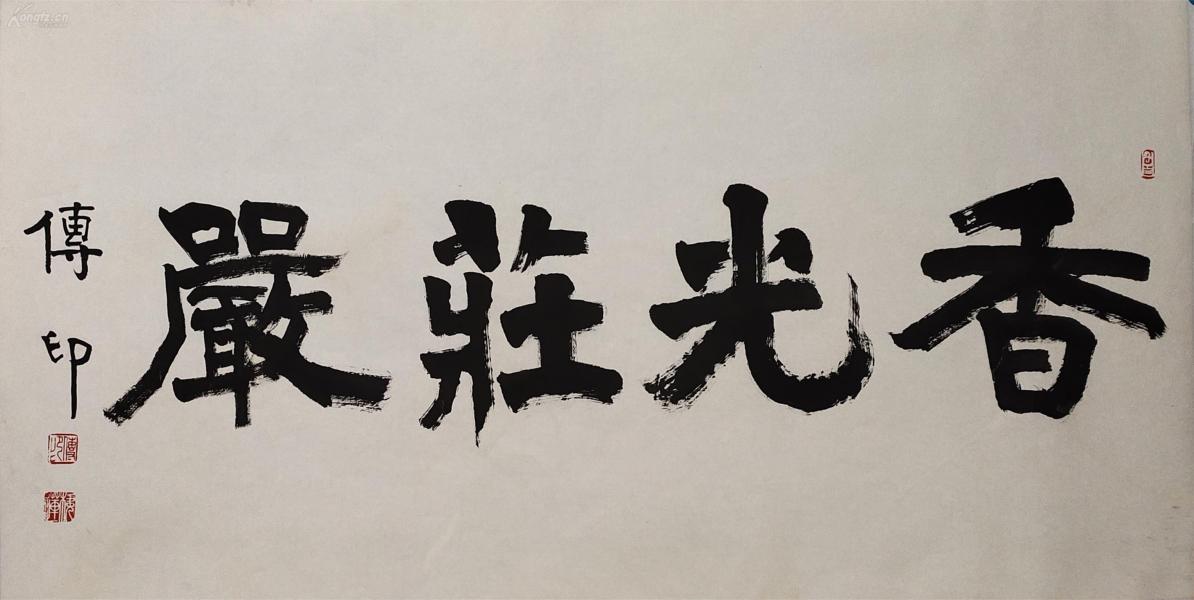 香光莊嚴
傳印
傳印
Kongfz.cn